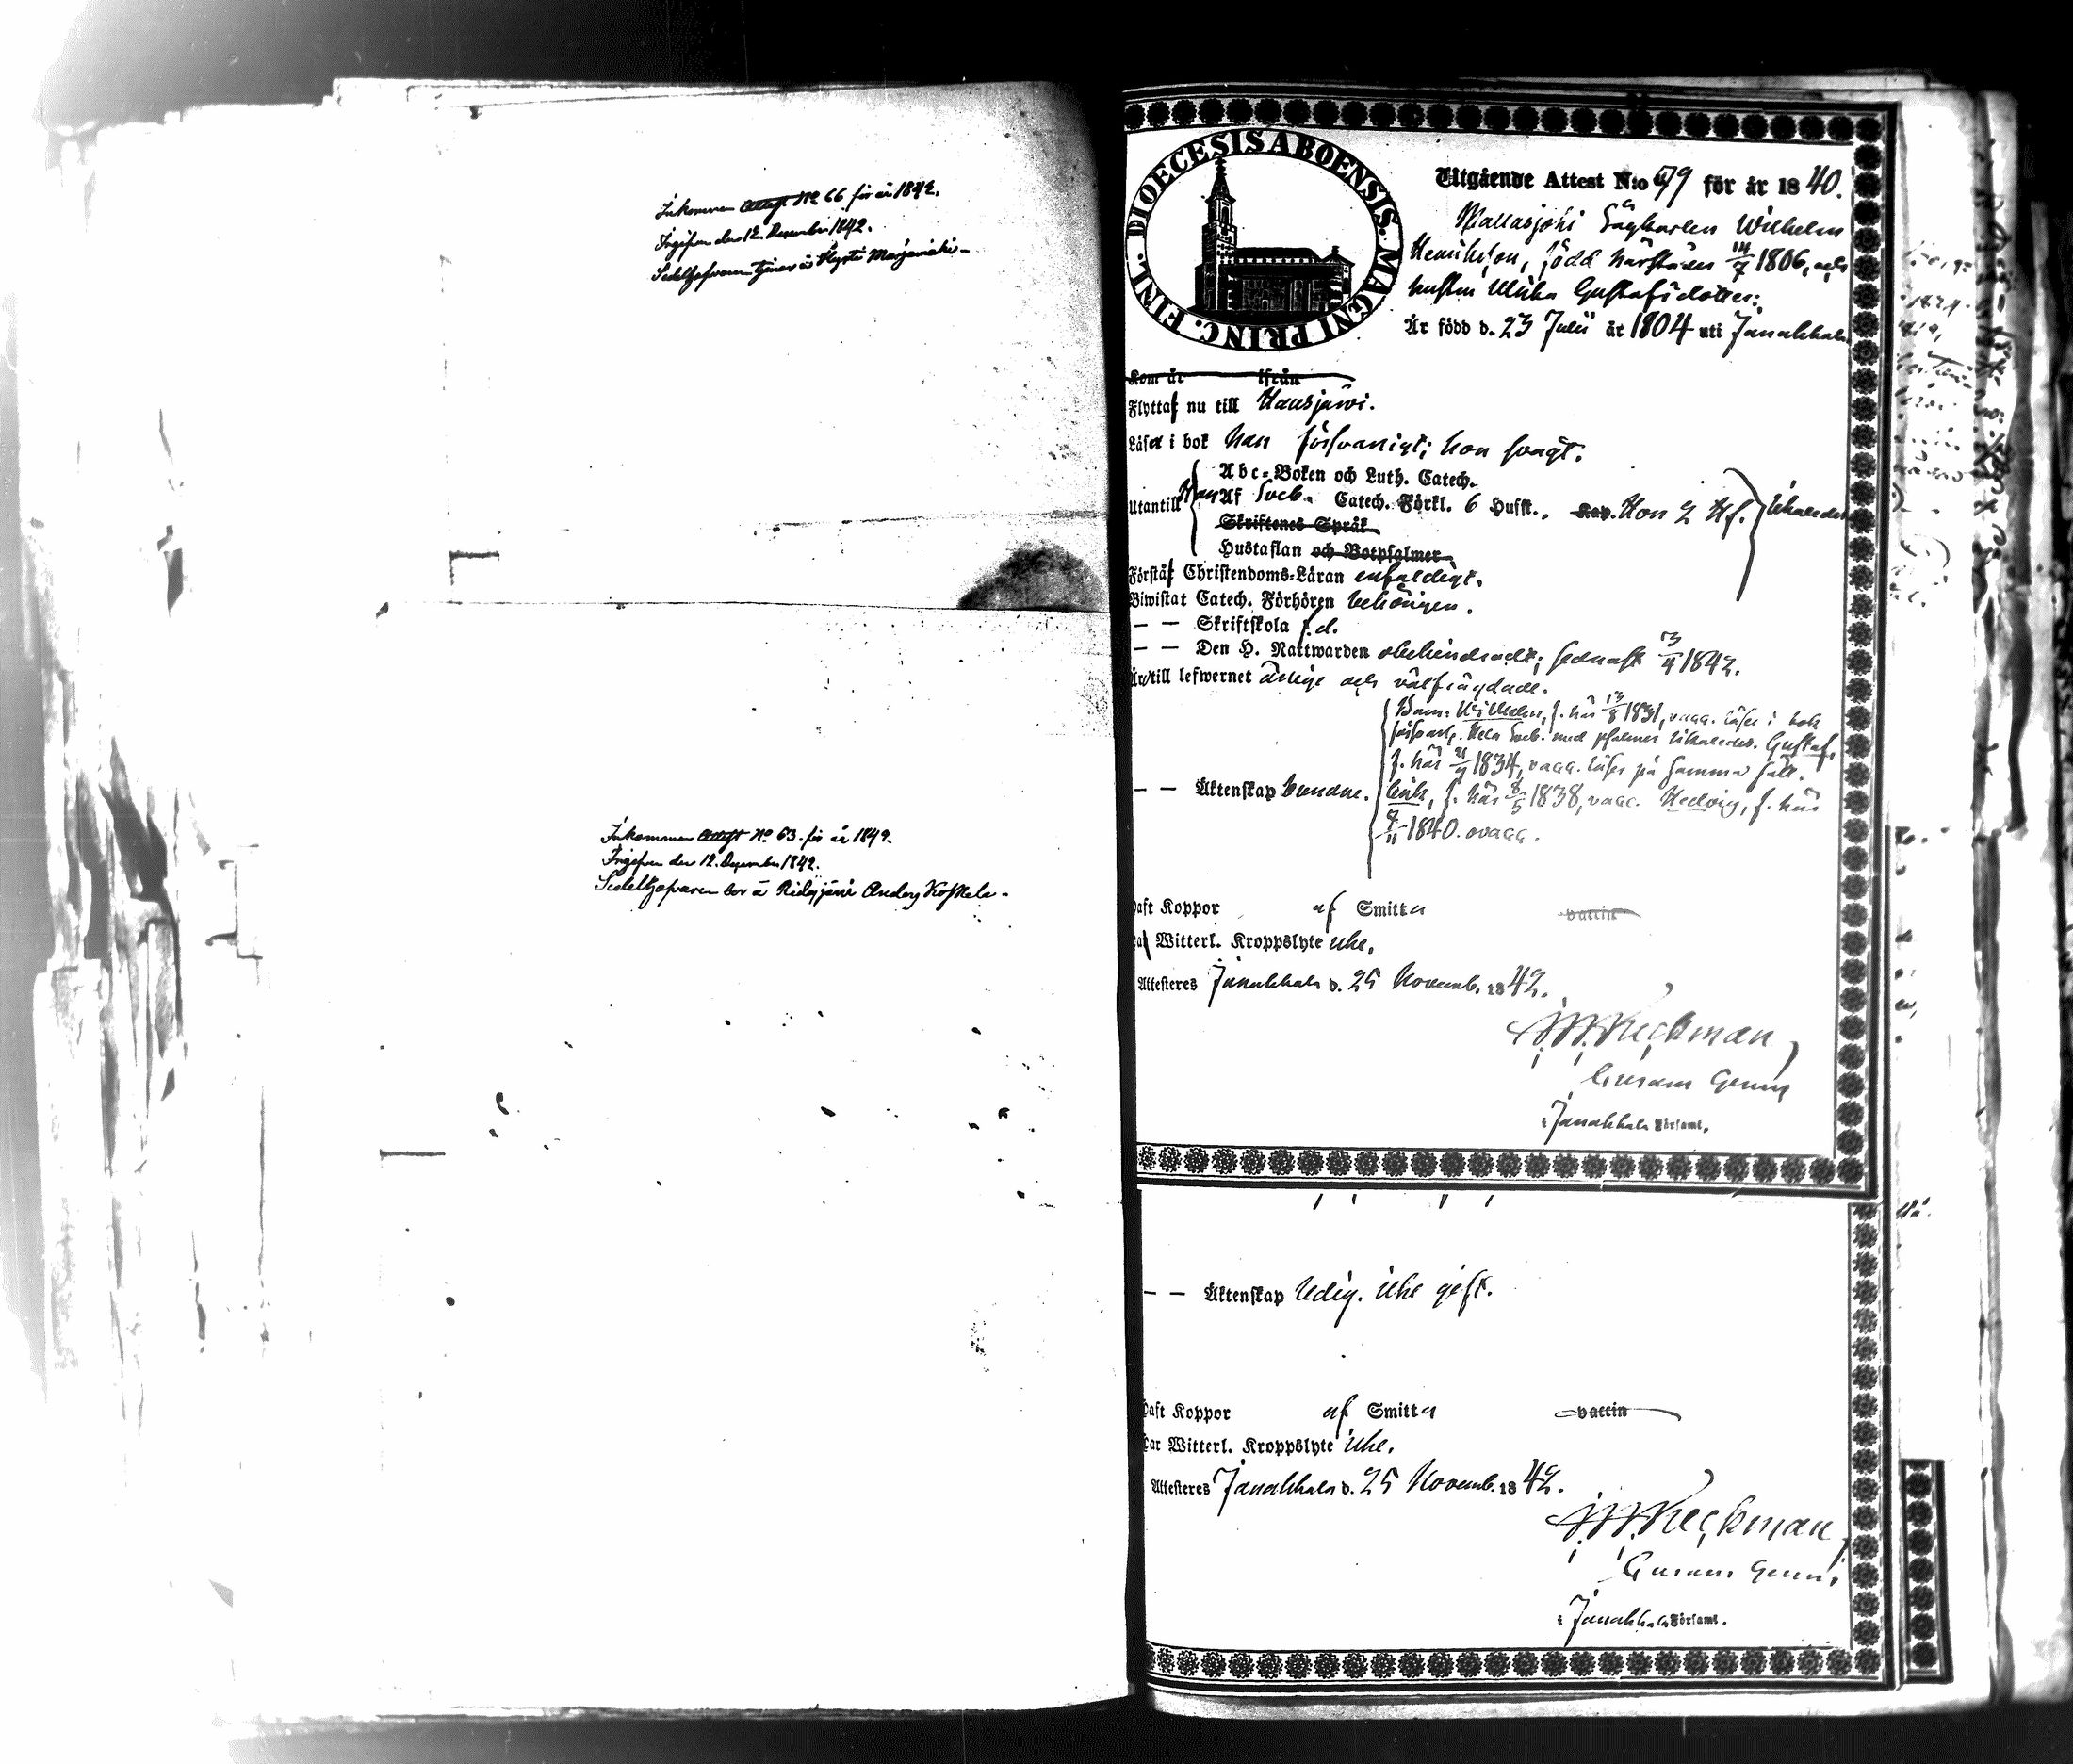 Inkommen Attest No 66 för år 1842.
Ingifven den 12 December 1842.
Sedelhafvaren tjenar å Hyvi Marjamäki
Inkommen Attest No 63 för år 1842.
Ingifven den 12. December 1842.
Sedelhafvaren bor å Ridasjärvi Anders Koskela
DIOECESIS ABOENSIS. MAGNI PRINC. FINL.
Utgående Attest N:o 79 för år 1840.
Mallasjoki Wilhelm
Henriksson, född härstädes 14/7 1806, och
hustru Ulrika Gustafsdotter:
Är född d. 23 Julii år 1804 uti Janakkala
Kom år ifrån
Flytta nu till Hausjärvi.
Läser i bok han försvarligt; hon svagt.
Abc-Boken och Luth. Catech.
Utantill Han Af Sveb. Catech. Förkl. 6 Hufst. Kap. Hon 2 Hf. likaledes
Skriftenes Språk
Hustaflan och Botpsalmer
Förstå Christendoms-Läran enfaldigt.
Biwistat Catech. Förhören behörigen.
— — Skriftskola f.d.
— — Den H. Nattwarden obehindradt; sednast 1842.
Äro till lefwernet ärlige och välfrägdade.
Barn: Wilhelm, f. här 1831, vacc. läser i bok
försvarl. Hela Sveb. med psalmer likaledes. Gustaf,
f. här 1834, vacc. läser på samma sätt.
— — Äktenskap bundne. f. här 8/5 1838, vacc. Hedvig, f. här
1840. ovacc.
Haft Koppor af Smitta vaccin
Har Witterl. Kroppslyte icke.
Attesteres Janakkala d. 25 Novemb. 1842.
Heckman,
i Janakkala Församl.
— — Äktenskap ledig. icke gift.
Haft Koppor af Smitta vaccin
Har Witterl. Kroppslyte icke.
Attesteres Janakkala d. 25 Novemb. 1842.
Heckman,
i Janakkala Församl.